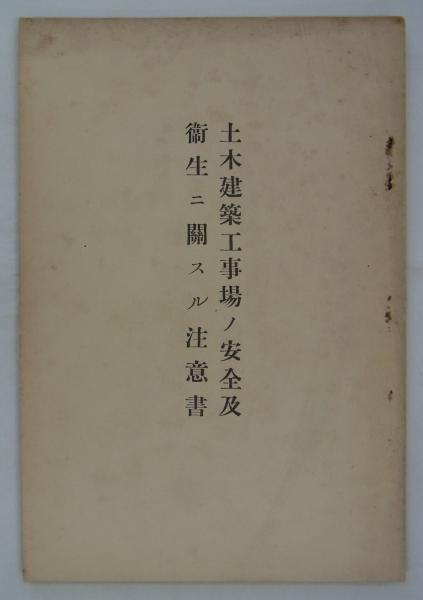 土木建築工事場ノ安全及
衞生ニ關スル注意書